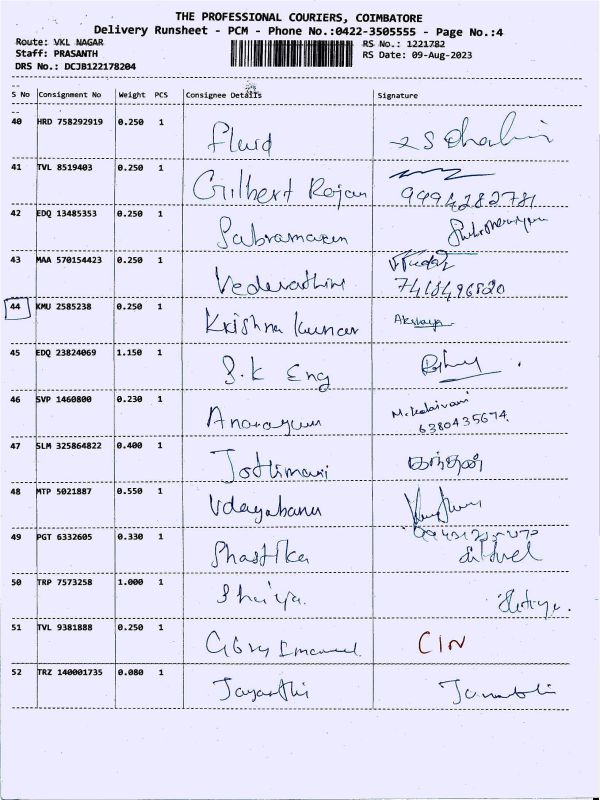 THE PROFESSIONAL COURIERS, COIMBATORE
Delivery Runsheet - PCM - Phone No.:0422-3505555 - Page No.:4
Route: VKL NAGAR
RS No.: 1221782
Staff: PRASANTH
RS Date: 09-Aug-2023
DRS No.: DCJB122178204
S No Consignment No Weight PCS Consignee Details Signature
40 HRD 758292919 0.250 1 fluid
41 TVL 8519403 0.250 1 Gilbert Rajan
9994282781
42 EDQ 13485353 0.250 1
43 MAA 570154423 0.250 1
7418496820
44 KMU 2585238 0.250 1 Krishna kumar Akshaya
45 EDQ 23824069 1.150 1 S.K Eng
46 SVP 1460800 0.230 1 M.Kalaivani
6380435674
47 SLM 325864822 0.400 1 Jothimani
48 MTP 5021887 0.550 1 Udayabanu
49 PGT 6332605 0.330 1 Shastika
50 TRP 7573258 1.000 1
51 TVL 9381888 0.250 1 CIN
52 TRZ 140001735 0.080 1 Jayanthi